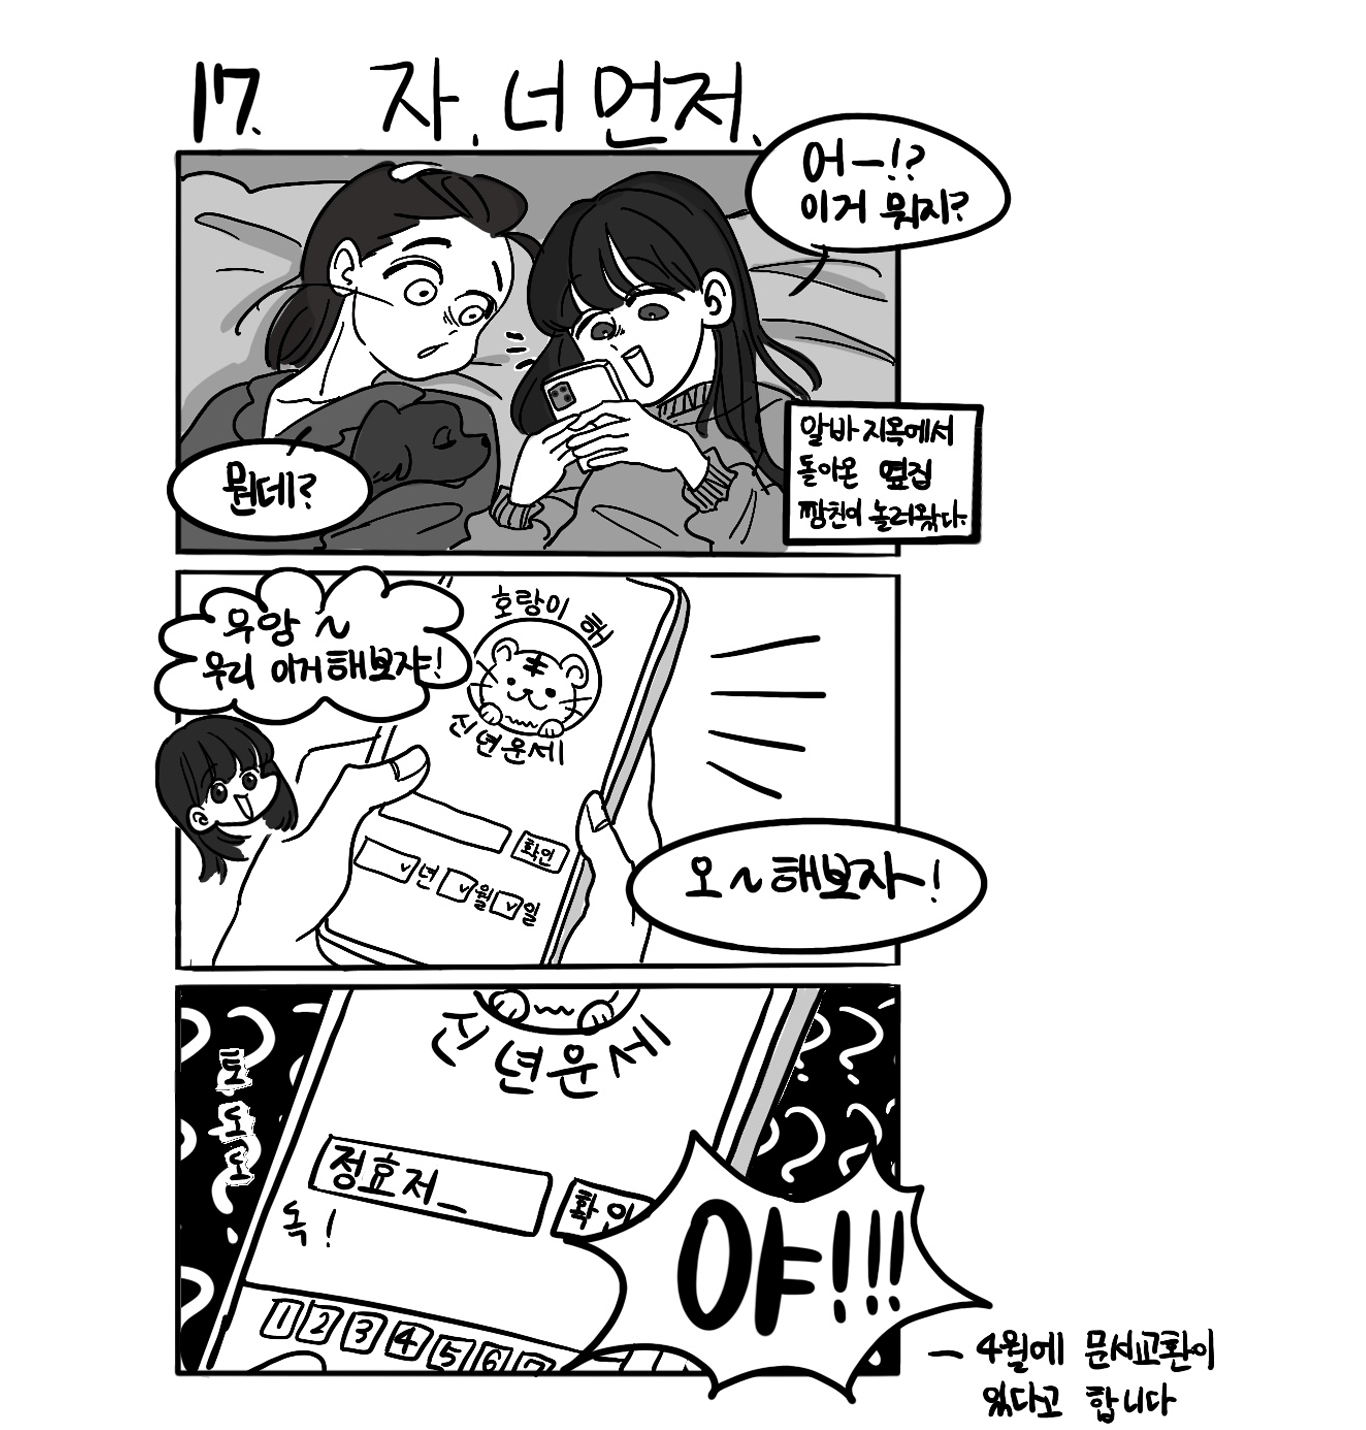 17. 자, 너 먼저.
어—!?
이거 뭐지?
뭔데?
알바 지옥에서
돌아온 옆집
짬친이 놀러왔다.
우앙~
우리 이거 해보쟈!
호랑이 해
신년운세
확인
년 월 일
오~해보자~!
신년운세
토도도
정효저_
확인
독!
1 2 3 4 5 6 7
야!!!
— 4월에 문서교환이
있다고 합니다